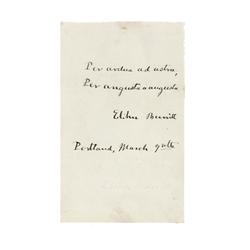 Per ardua ad astra,
Per angusta a augusta
Elihu Burritt
Portland, March